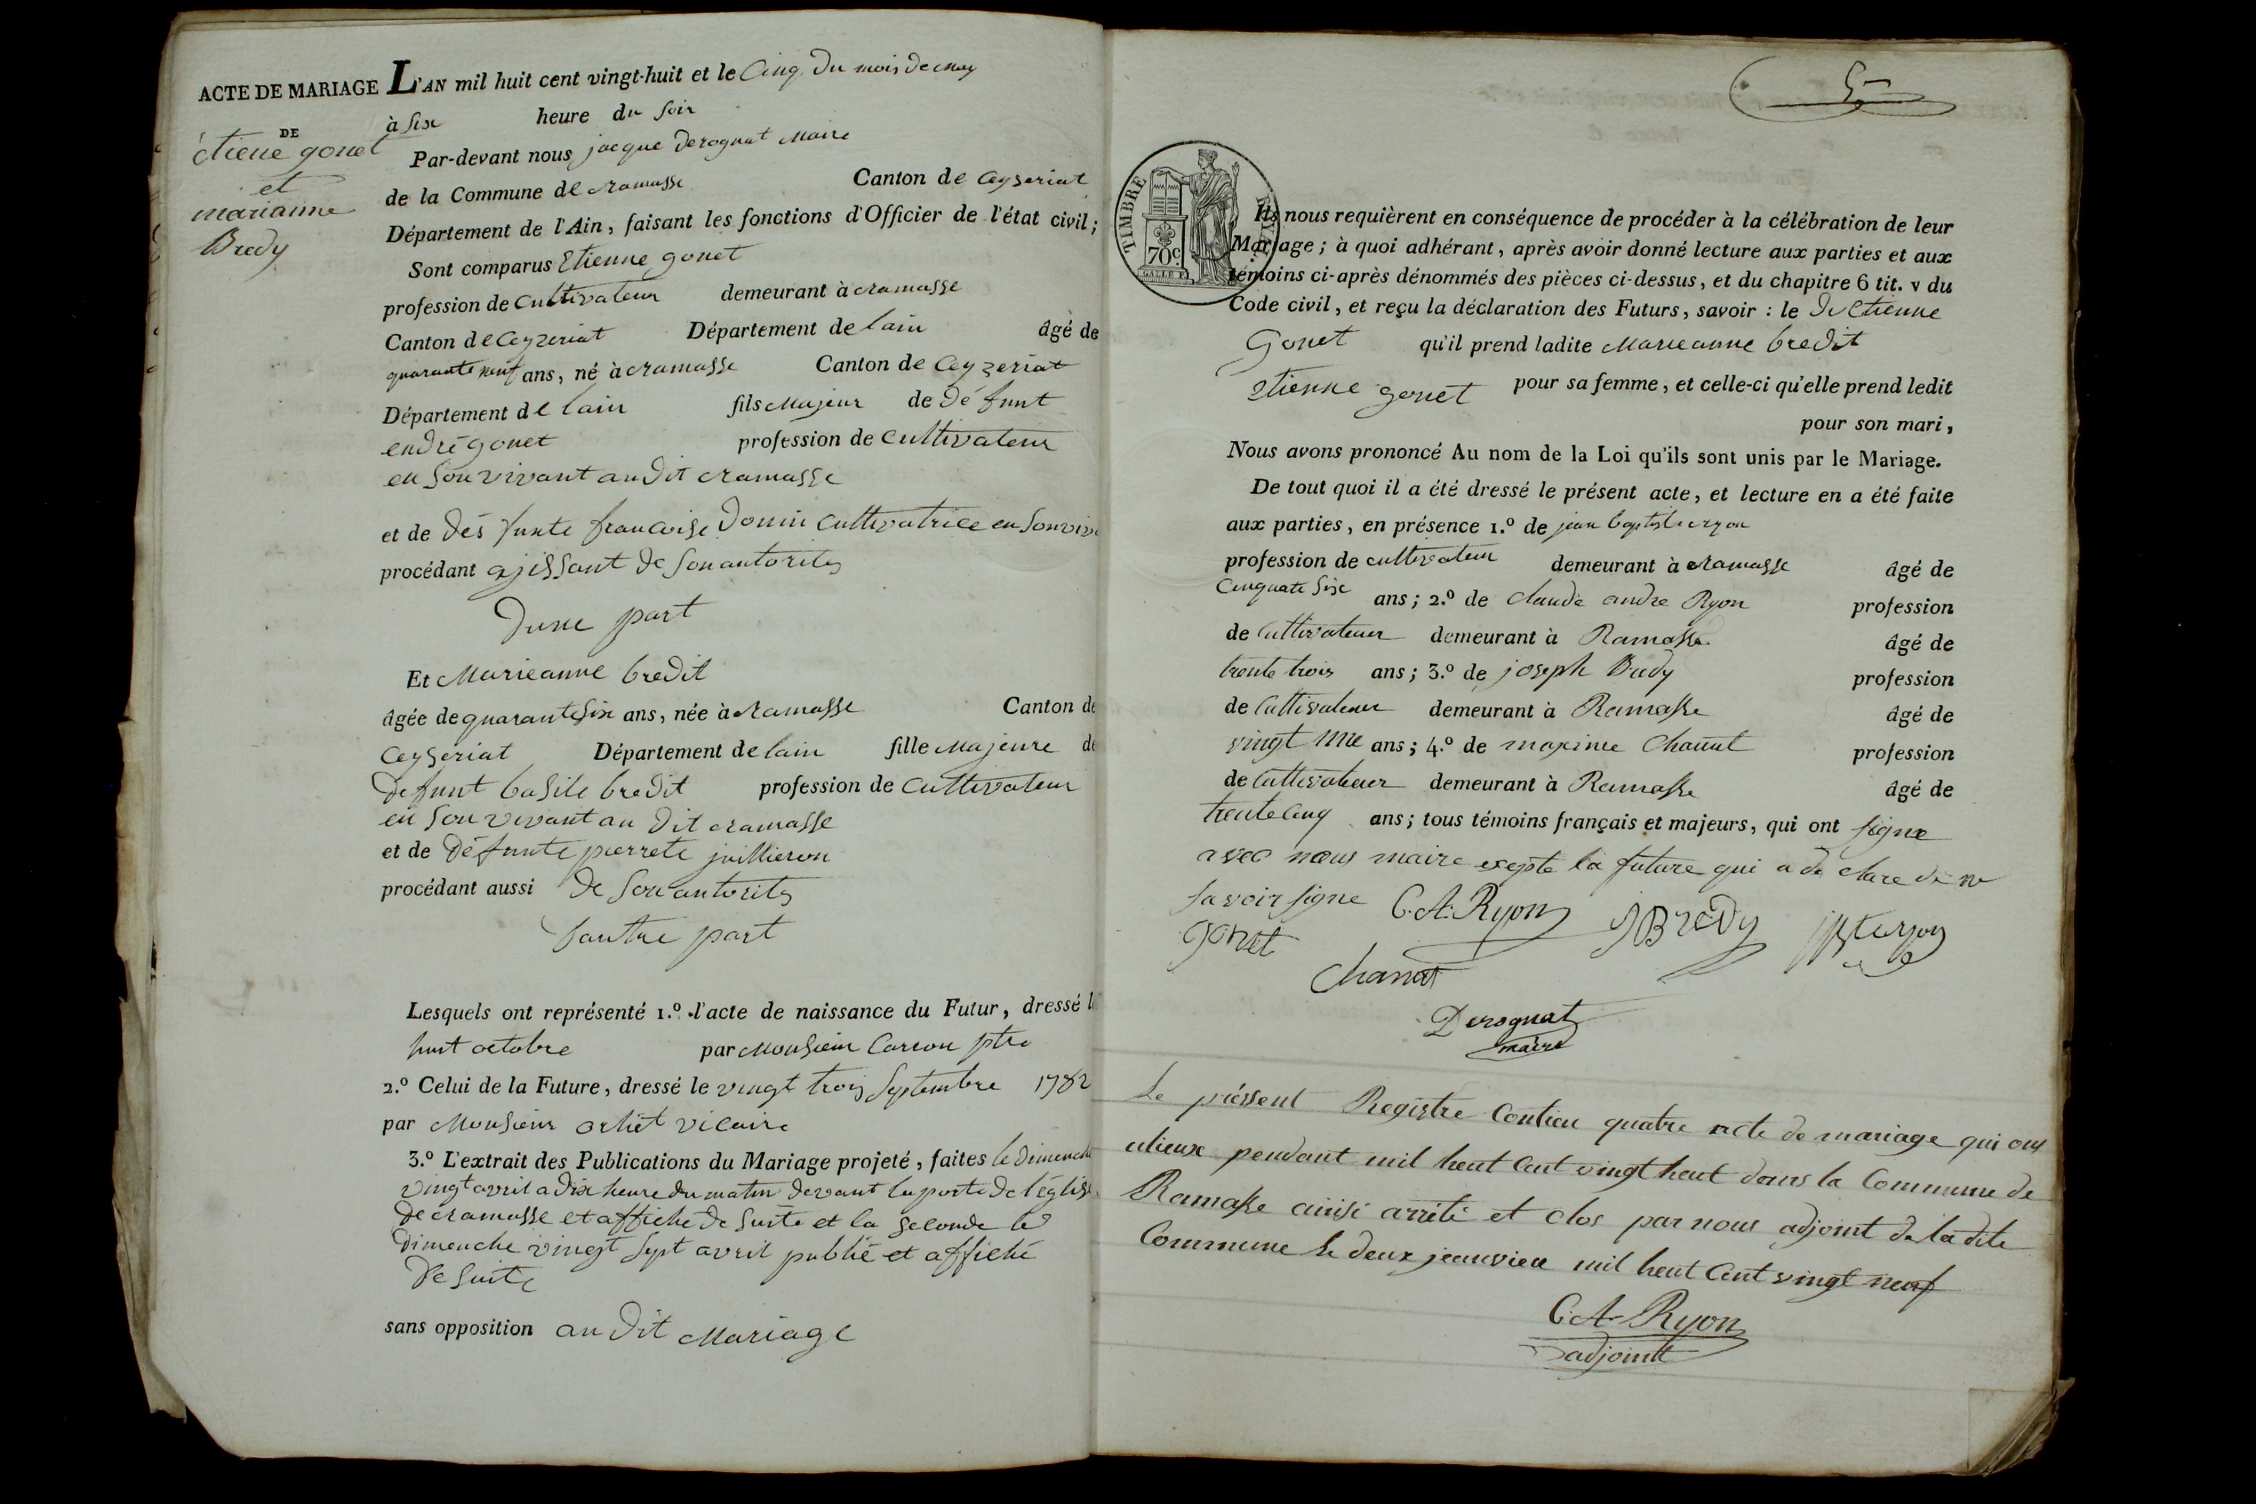 ACTE DE MARIAGE
DE
étiene gonet
et
marianne
Bredy
L'AN mil huit cent vingt-huit et le Cinq du mois de may
à six heure du soir
Par-devant nous jacque derognat Maire
de la Commune de ramasse Canton de Ceyseriat
Département de l'Ain, faisant les fonctions d'Officier de l'état civil;
Sont comparus Etienne gonet
profession de Cultivateur demeurant à ramasse
Canton de Ceyzeriat Département de lain âgé de
quarante neuf ans, né à ramasse Canton de Ceyzeriat
Département de lain fils Majeur de dé funt
endré gonet profession de Cultivateur
en son vivant au dit ramasse
et de dés funte francoise Cultivatrice en son
procédant ajissant de son autorités
dune part
Et Marieanne bredit
âgée de quarante six ans, née à ramasse Canton de
Ceyseriat Département de lain fille Majeure de
defunt basile bredit profession de Cultivateur
en son vivant au dit ramasse
et de défunte pierrete juillieron
procédant aussi de son autorités
dautre part
Lesquels ont représenté 1.º l'acte de naissance du Futur, dressé le
huit octobre par Monsieur Carron ptre
2.º Celui de la Future, dressé le vingt trois Septembre 1782
par Monsieur vicaire
3.º L'extrait des Publications du Mariage projeté, faites le dimenche
vingt avril a dix heure du matin devant la porte de l'église
de ramasse et affiché de suite et la seconde le
dimenche vingt sept avril publié et affiché
de suite
sans opposition au dit Mariage
5
TIMBRE ROYAL
70c.
Ils nous requièrent en conséquence de procéder à la célébration de leur
Mariage; à quoi adhérant, après avoir donné lecture aux parties et aux
témoins ci-après dénommés des pièces ci-dessus, et du chapitre 6 tit. v du
Code civil, et reçu la déclaration des Futurs, savoir: le dit Etienne
Gonet qu'il prend ladite Marieanne bredit
pour sa femme, et celle-ci qu'elle prend ledit
Etienne gonet pour son mari,
Nous avons prononcé Au nom de la Loi qu'ils sont unis par le Mariage.
De tout quoi il a été dressé le présent acte, et lecture en a été faite
aux parties, en présence 1.º de jean baptiste
profession de cultivateur demeurant à ramasse âgé de
Cinquate six ans; 2.º de claude andre Ryon profession
de Cultivateur demeurant à Ramasse âgé de
trente trois ans; 3.º de joseph Bredy profession
de Cultivateur demeurant à Ramasse âgé de
vingt une ans; 4.º de maxime Chanut profession
de Cultivateur demeurant à Ramasse âgé de
trente cinq ans; tous témoins français et majeurs, qui ont signe
avec nous maire exepte la future qui a de clare de ne
savoir signe C. A. Ryon JBredy
Gonet
Chanut
Derognat
maire
Le préssent Registre Contien quatre acte de mariage qui ont
ulieux pendant mil heut cent vingt heut dans la Commune de
Ramasse ainsi arrêté et clos par nous adjoint de la dite
Commune le deux jeanvier mil heut cent vingt neuf
C. A. Ryon
adjoint